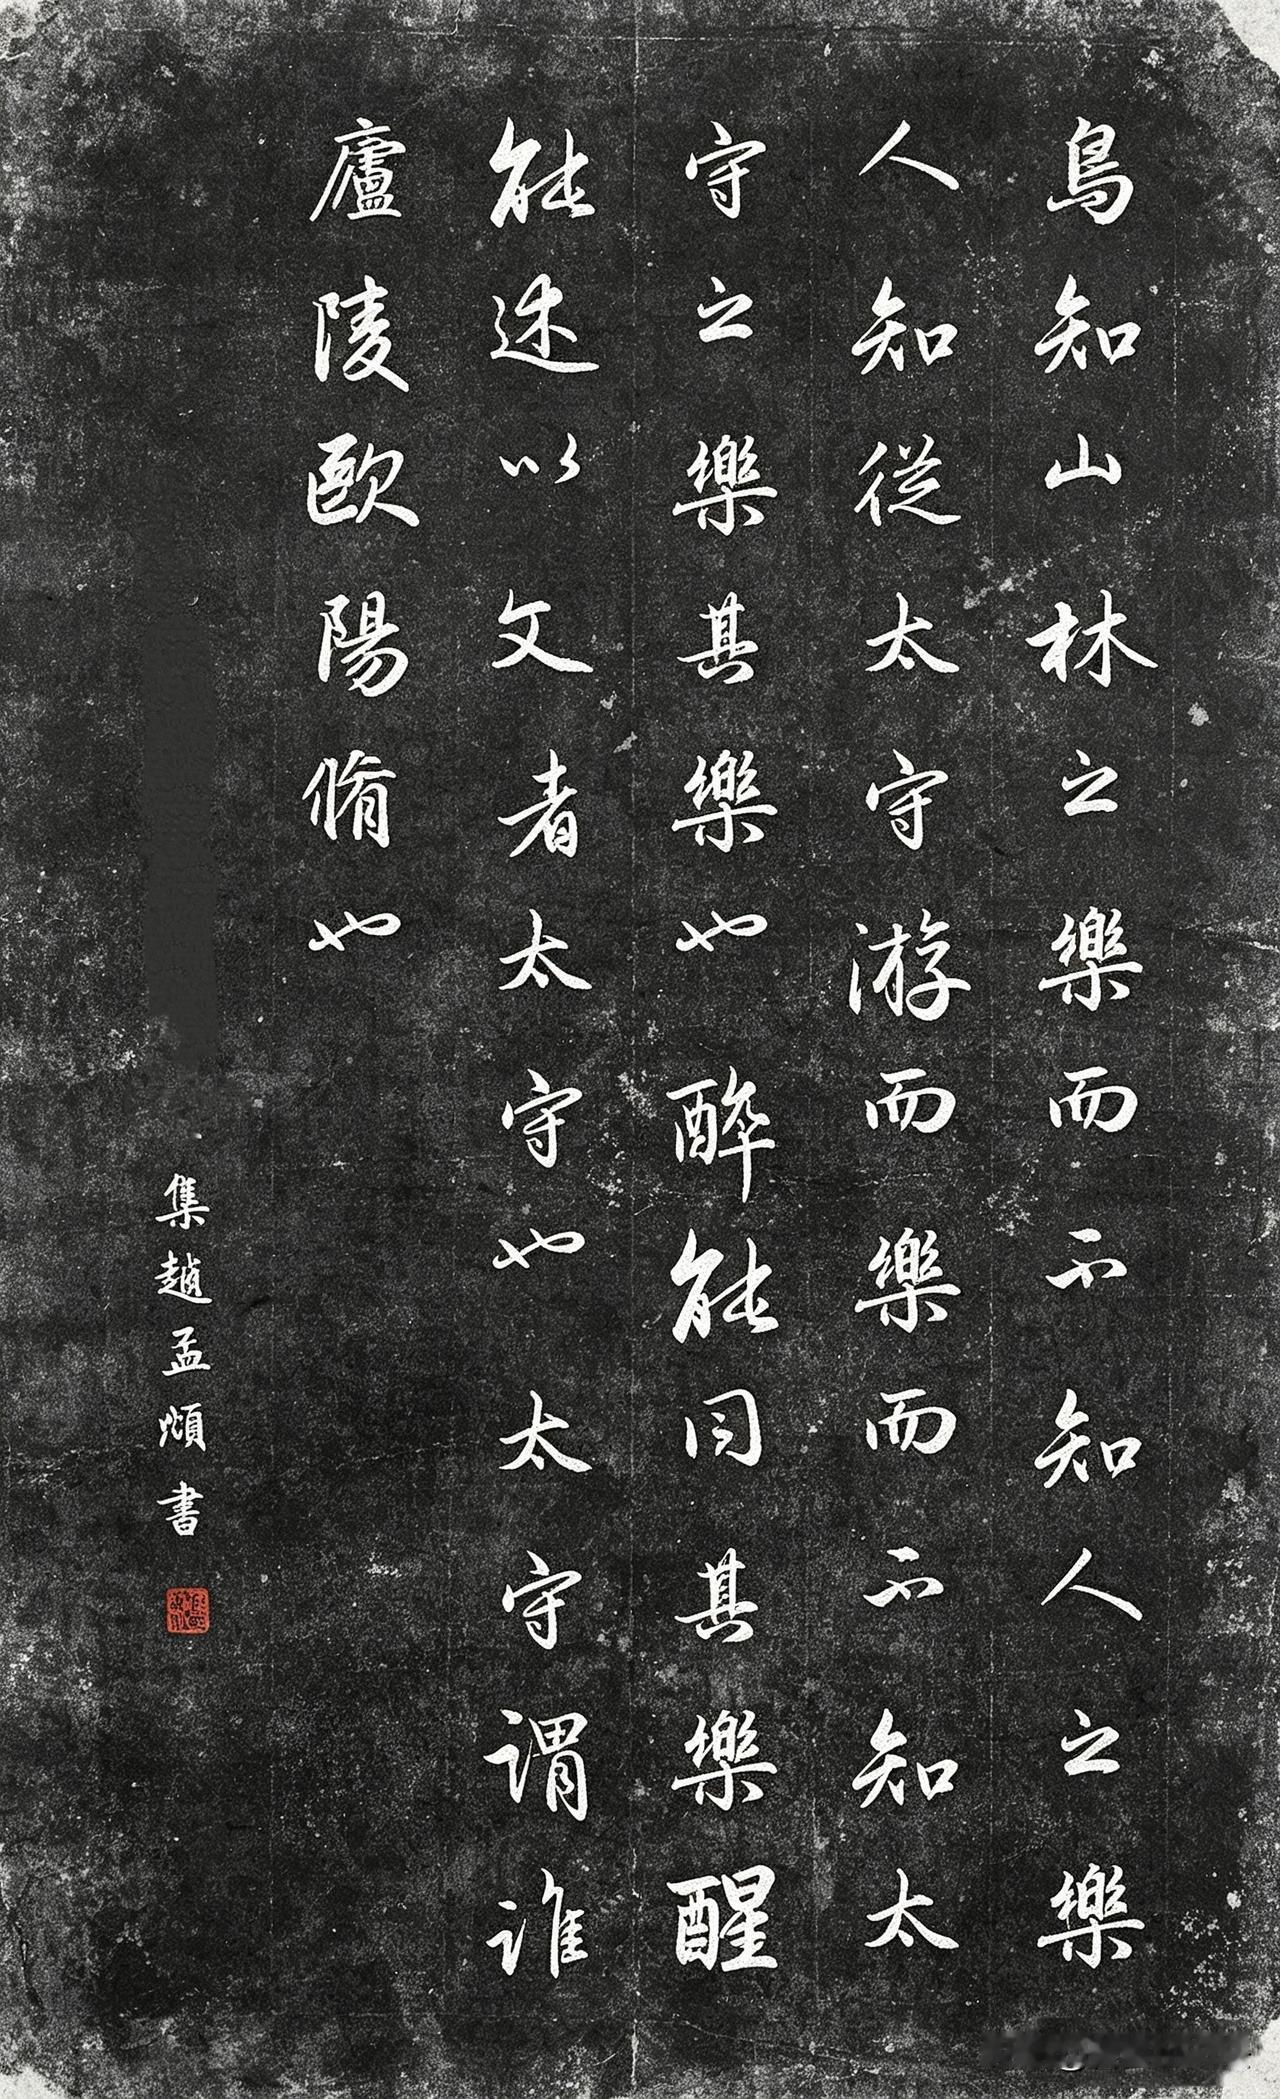 鳥知山林之樂而不知人之樂
人知從太守游而樂而不知太
守之樂其樂也醉能同其樂醒
能述以文者太守也太守謂誰
廬陵歐陽脩也
集趙孟頫書